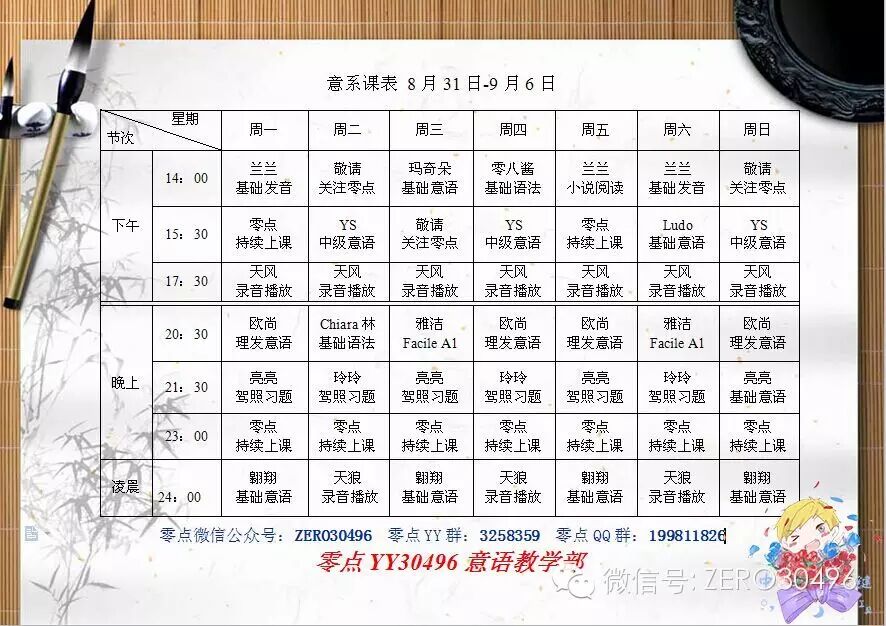 意系课表 8月31日-9月6日
星期 周一 周二 周三 周四 周五 周六 周日
节次
下午
14：00 兰兰 敬请 玛奇朵 零八酱 兰兰 兰兰 敬请
基础发音 关注零点 基础意语 基础语法 小说阅读 基础发音 关注零点
15：30 零点 YS 敬请 YS 零点 Ludo YS
持续上课 中级意语 关注零点 中级意语 持续上课 基础意语 中级意语
17：30 天风 天风 天风 天风 天风 天风 天风
录音播放 录音播放 录音播放 录音播放 录音播放 录音播放 录音播放
晚上
20：30 欧尚 Chiara 林 雅洁 欧尚 欧尚 雅洁 欧尚
理发意语 基础语法 Facile A1 理发意语 理发意语 Facile A1 理发意语
21：30 亮亮 玲玲 亮亮 玲玲 亮亮 玲玲 亮亮
驾照习题 驾照习题 驾照习题 驾照习题 驾照习题 驾照习题 基础意语
23：00 零点 零点 零点 零点 零点 零点 零点
持续上课 持续上课 持续上课 持续上课 持续上课 持续上课 持续上课
凌晨
24：00 翱翔 天狼 翱翔 天狼 翱翔 天狼 翱翔
基础意语 录音播放 基础意语 录音播放 基础意语 录音播放 基础意语
零点微信公众号：ZERO30496 零点YY群：3258359 零点QQ群：199811826
零点YY30496意语教学部
微信号: ZERO30496